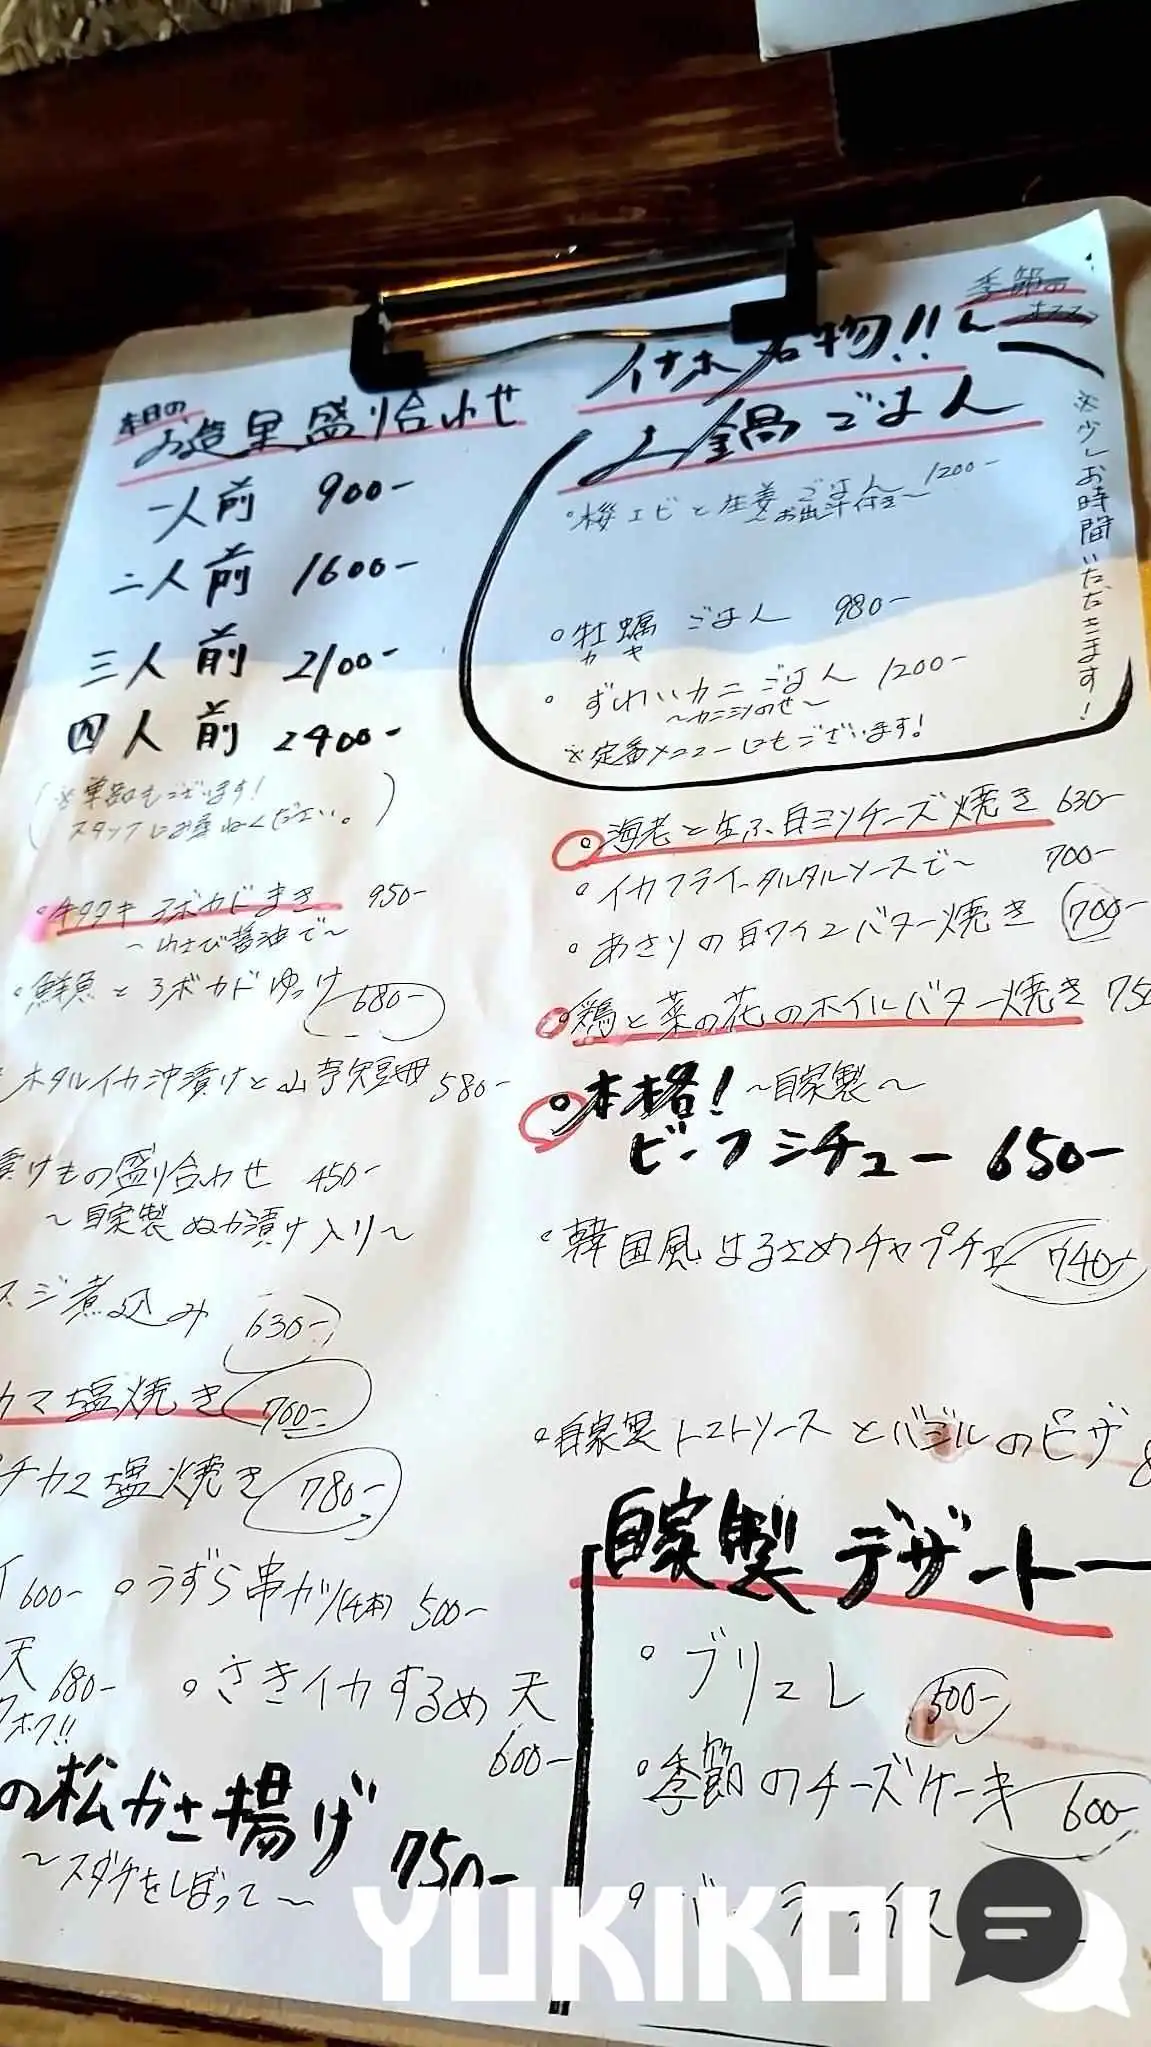 本日の
お造里盛り合わせ
一人前 900-
二人前 1600-
三人前 2100-
四人前 2400-
(※単品もございます!
スタッフにお尋ねください。)
牛タタキアボカドまき 950-
~わさび醤油で~
鮮魚とアボカドゆっけ 680-
ホタルイカ沖漬けと山芋短冊 580-
漬けもの盛り合わせ 450-
~自家製ぬか漬け入り~
スジ煮込み 630-
カマ塩焼き 760-
チカマ塩焼き 780-
600- うずら串カツ(4本) 500-
天 680- さきイカするめ天
600-
の松かさ揚げ 750-
~スダチをしぼって~
季節の
イナホ名物!!
土鍋ごはん
※少しお時間いただきます!
桜エビと生姜ごはん 1200-
~お出汁付き~
牡蠣ごはん 980-
カキ
ずわいカニごはん 1200-
~カニミソのせ~
※定番メニューにもございます!
海老と生ふ白ミソチーズ焼き 630-
イカフライ~タルタルソースで~ 700-
あさりの白ワインバター焼き 700-
鶏と菜の花のホイルバター焼き 750
本格! ~自家製~
ビーフシチュー 650-
韓国風はるさめチャプチェ 740-
自家製トマトソースとバジルのピザ
自家製デザート
ブリュレ 500-
季節のチーズケーキ 600-
YUKIKOI